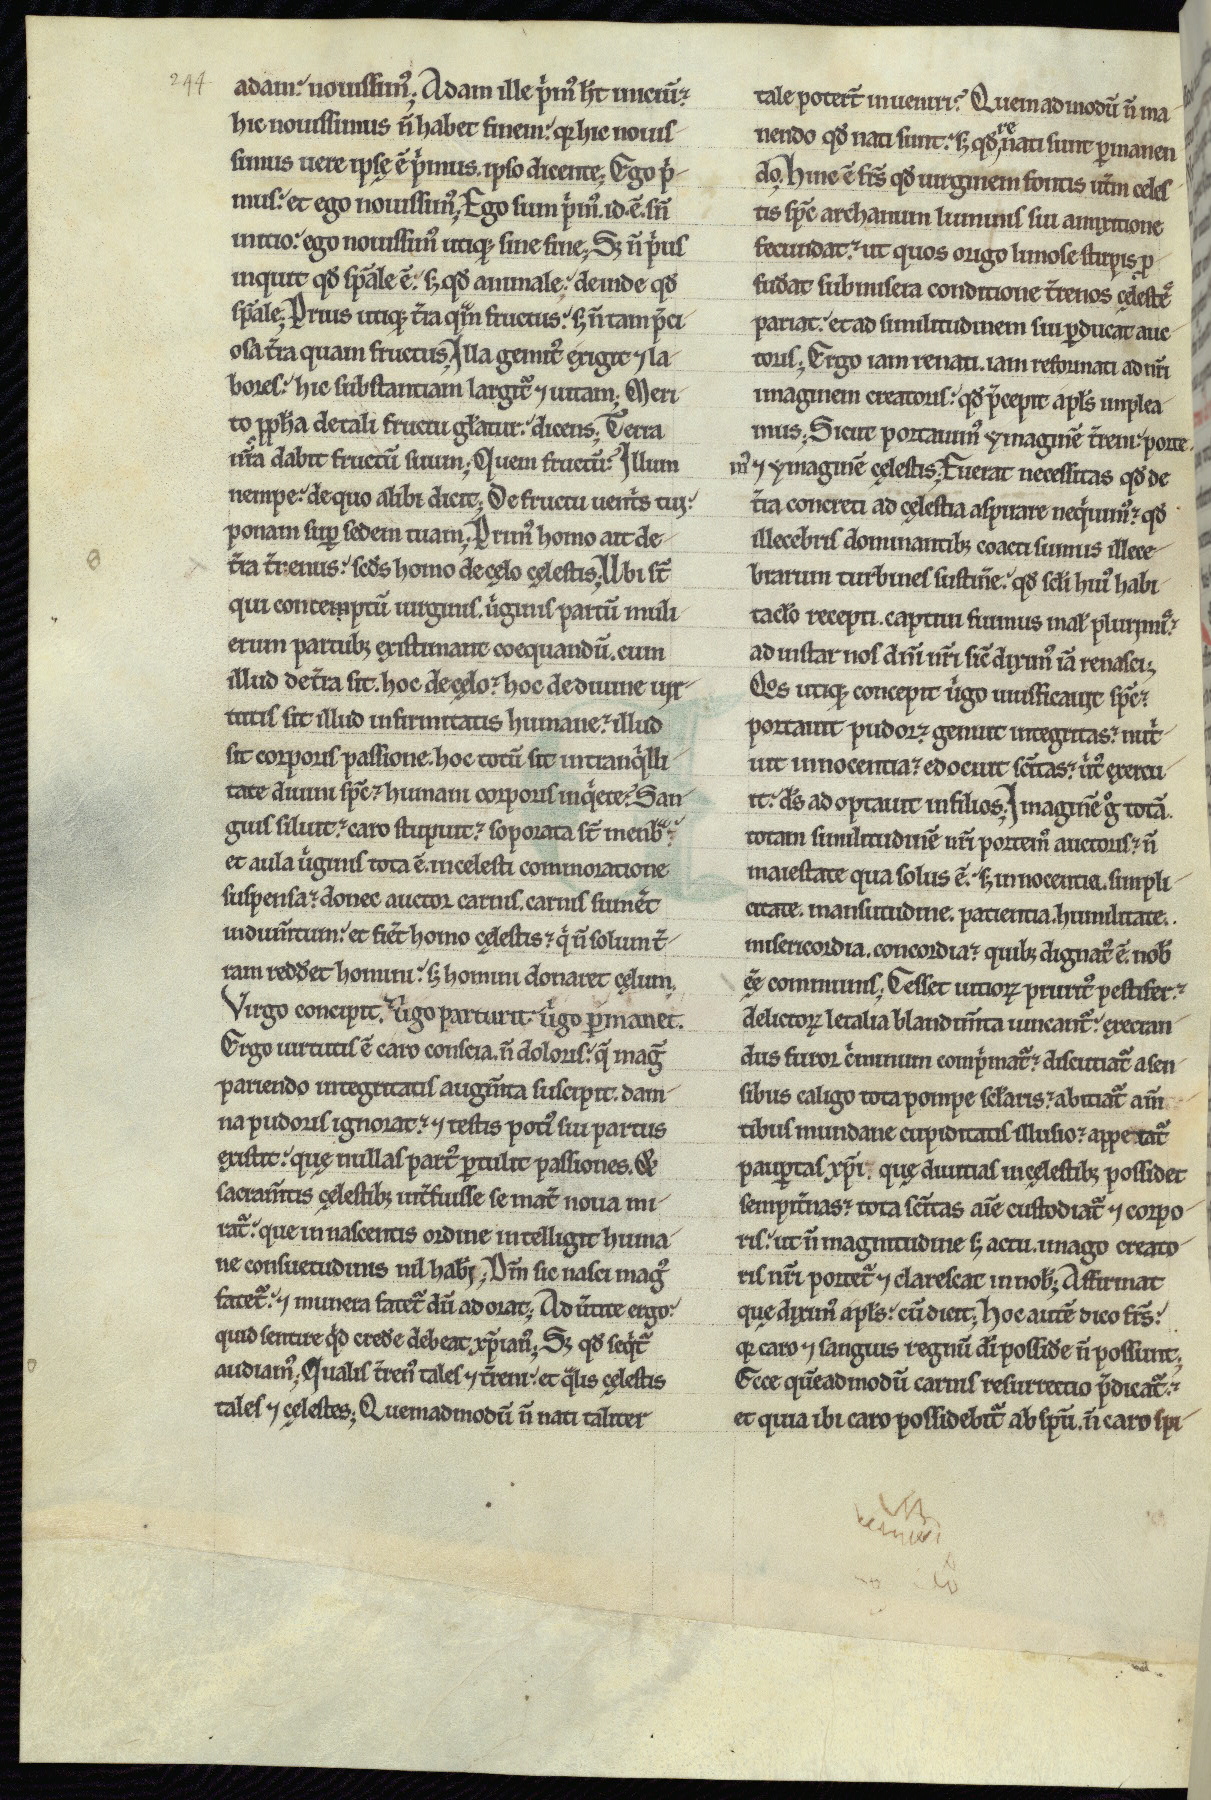 244
adam: nouissim᷒; Adam ille p̍m᷒ h̄t iniciū:
hic nouissimus n̄ habet finem: q̇ hic nouis
simus uere ipsę ē p̍mus. ipso dicente; Ego p̍
mus: et ego nouissim᷒; Ego sum p̍m᷒. id ē. sn̄
initio: ego nouissim᷒ utiq; sine fine; Sꝫ n̄ p̍us
inquit qd̄ sp̄ale ē: sꝫ qd̄ animale: deinde qd̄
sp̄ale; Prius utiq; t̄ra qm̄ fructus: sꝫ n̄ tam p̄ci
osa t̄ra quam fructus; Illa gemit᷒ exigit ⁊ la
bores: hic substantiam largit᷒ ⁊ uitam; Meri
to ꝓph̄a de tali fructu gl̄atur: dicens; Terra
nr̄a dabit fructū suum; Quem fructū: Illum
nempe: de quo alibi dicit; De fructu uent̄s tui:
ponam suꝑ sedem tuam; Prim᷒ homo ait de
t̄ra t̄renus: scd̄s homo de cęlo cęlestis; Vbi st̄
qui conceptū uirginis. ūginis partū muli
erum partubꝫ existimant coequandū. cum
illud de t̄ra sit. hoc de cęlo: hoc de diuine uir
tutis sit illud infirmitatis humane: illud
sit corporis passione. hoc totū sit in tranq̍lli
tate diuini sp̄c: humani corporis inq̍ete: San
guis siluit: caro stupuit: soporata st̄ menb᷒:
et aula ūginis tota ē. in celesti commoratione
suspensa: donec auctor carnis. carnis sumēt
indum̄tum: et fiēt homo cęlestis: q̍ n̄ solum t̄
ram redd̄et homini: sꝫ homini donaret cęlum.
Virgo concipit: ūgo parturit ūgo ꝑmanet.
Ergo uirtutis ē caro conscia. n̄ doloris: q̄ mag̅
pariendo integritatis augm̄ta suscipit. dam
na pudoris ignorat: ⁊ testis poti᷒ sui partus
existit: que nullas part᷒ ꝑtulit passiones. &
sacram̄tis cęlestibꝫ int̄fuisse se mat̄ noua mi
rat᷒: que in nascentis ordine intelligit huma
ne consuetudinis nil hab̄i; D̄m sic nasci mag᷒
fatet᷒: ⁊ munera fatet᷒ dū adorat; Adūtite ergo:
quid sentire q̍d cred̄e debeat xp̄ian᷒; Sꝫ qd̄ seq̍t᷒
audiam᷒; Qualis t̄ren᷒ tales ⁊ t̄reni: et q̄lis cęlestis
tales ⁊ cęlestes; Quemadmodū n̄ nati taliter
tale poterit inueniri: Quemadmodū n̄ ma
nendo qd̄ nati sunt: sꝫ qd̄ renati sunt ꝑmanen
do; Hinc ē fr̄s qd̄ uirginem fontis ut̄m celes
tis sp̄c archanum luminis sui amixtione
fecundat: ut quos origo limose stirpis ꝓ
fud̄at sub misera conditione t̄renos cęlestē
pariat: et ad similitudinem sui ꝓducat auc
toris; Ergo iam renati. iam reformati ad nr̄i
imaginem creatoris: qd̄ p̄cepit apl̄s implea
mus; Sicut portauim᷒ ymaginē t̄reni: porte
m᷒ ⁊ ymaginē cęlestis; Fuerat necessitas qd̄ de
t̄ra concreti ad cęlestia aspirare neq̍uim᷒: qd̄
illecebris dominantibꝫ coacti sumus illece
brarum turbines sustin̄e: qd̄ scl̄i hui᷒ habi
taclo recepti. captiui fuimus mal᷒ plurimis:
ad instar nos dn̄i nr̄i sic̄ dixim᷒ iā renasci;
Qos utiq; concepit ūgo uiuificauit sp̄c:
portauit pudor: genuit integritas: nut̍
uit innocentia: edocuit sc̄itas: ūt᷒ exercu
it: d̄s adoptauit in filios; Imaginē g̊ totā.
totam similitudinē nr̄i portem᷒ auctoris: n̄
maiestate qua solus ē: sꝫ innocentia. simpli
citate. mansuitudine. patientia. humilitate.
misericordia. concordia: quibꝫ dignat᷒ ē. nob̄
ēe communis; Cesset uitioꝝ prurit᷒ pestifer:
delictoꝝ letalia blandim̄ta uincant᷒: execran
dus furor c̍minum comp̍mat᷒: discutiat᷒ a sen
sibus caligo tota pompe scl̄aris: abitiat᷒ am̄
tibus mundane cupiditatis illusio: appetat᷒
pauꝑtas xp̄i: que diuitias in cęlestibꝫ possidet
sempit̄nas: tota sc̄itas aīe custodiat᷒ ⁊ corpo
ris: ut n̄ magnitudine sꝫ actu. imago creato
ris nr̄i portet᷒ ⁊ clarescat in nob̄; Affirmat
que dixim᷒ apl̄s: cū dicit; Hoc autē dico fr̄s:
q̇ caro ⁊ sanguis regnū d̄i possid̄e n̄ possunt;
Ecce quēadmodū carnis resurrectio p̄dicat᷒:
et quia ibi caro possidebit᷒ ab sp̄u. n̄ caro spi